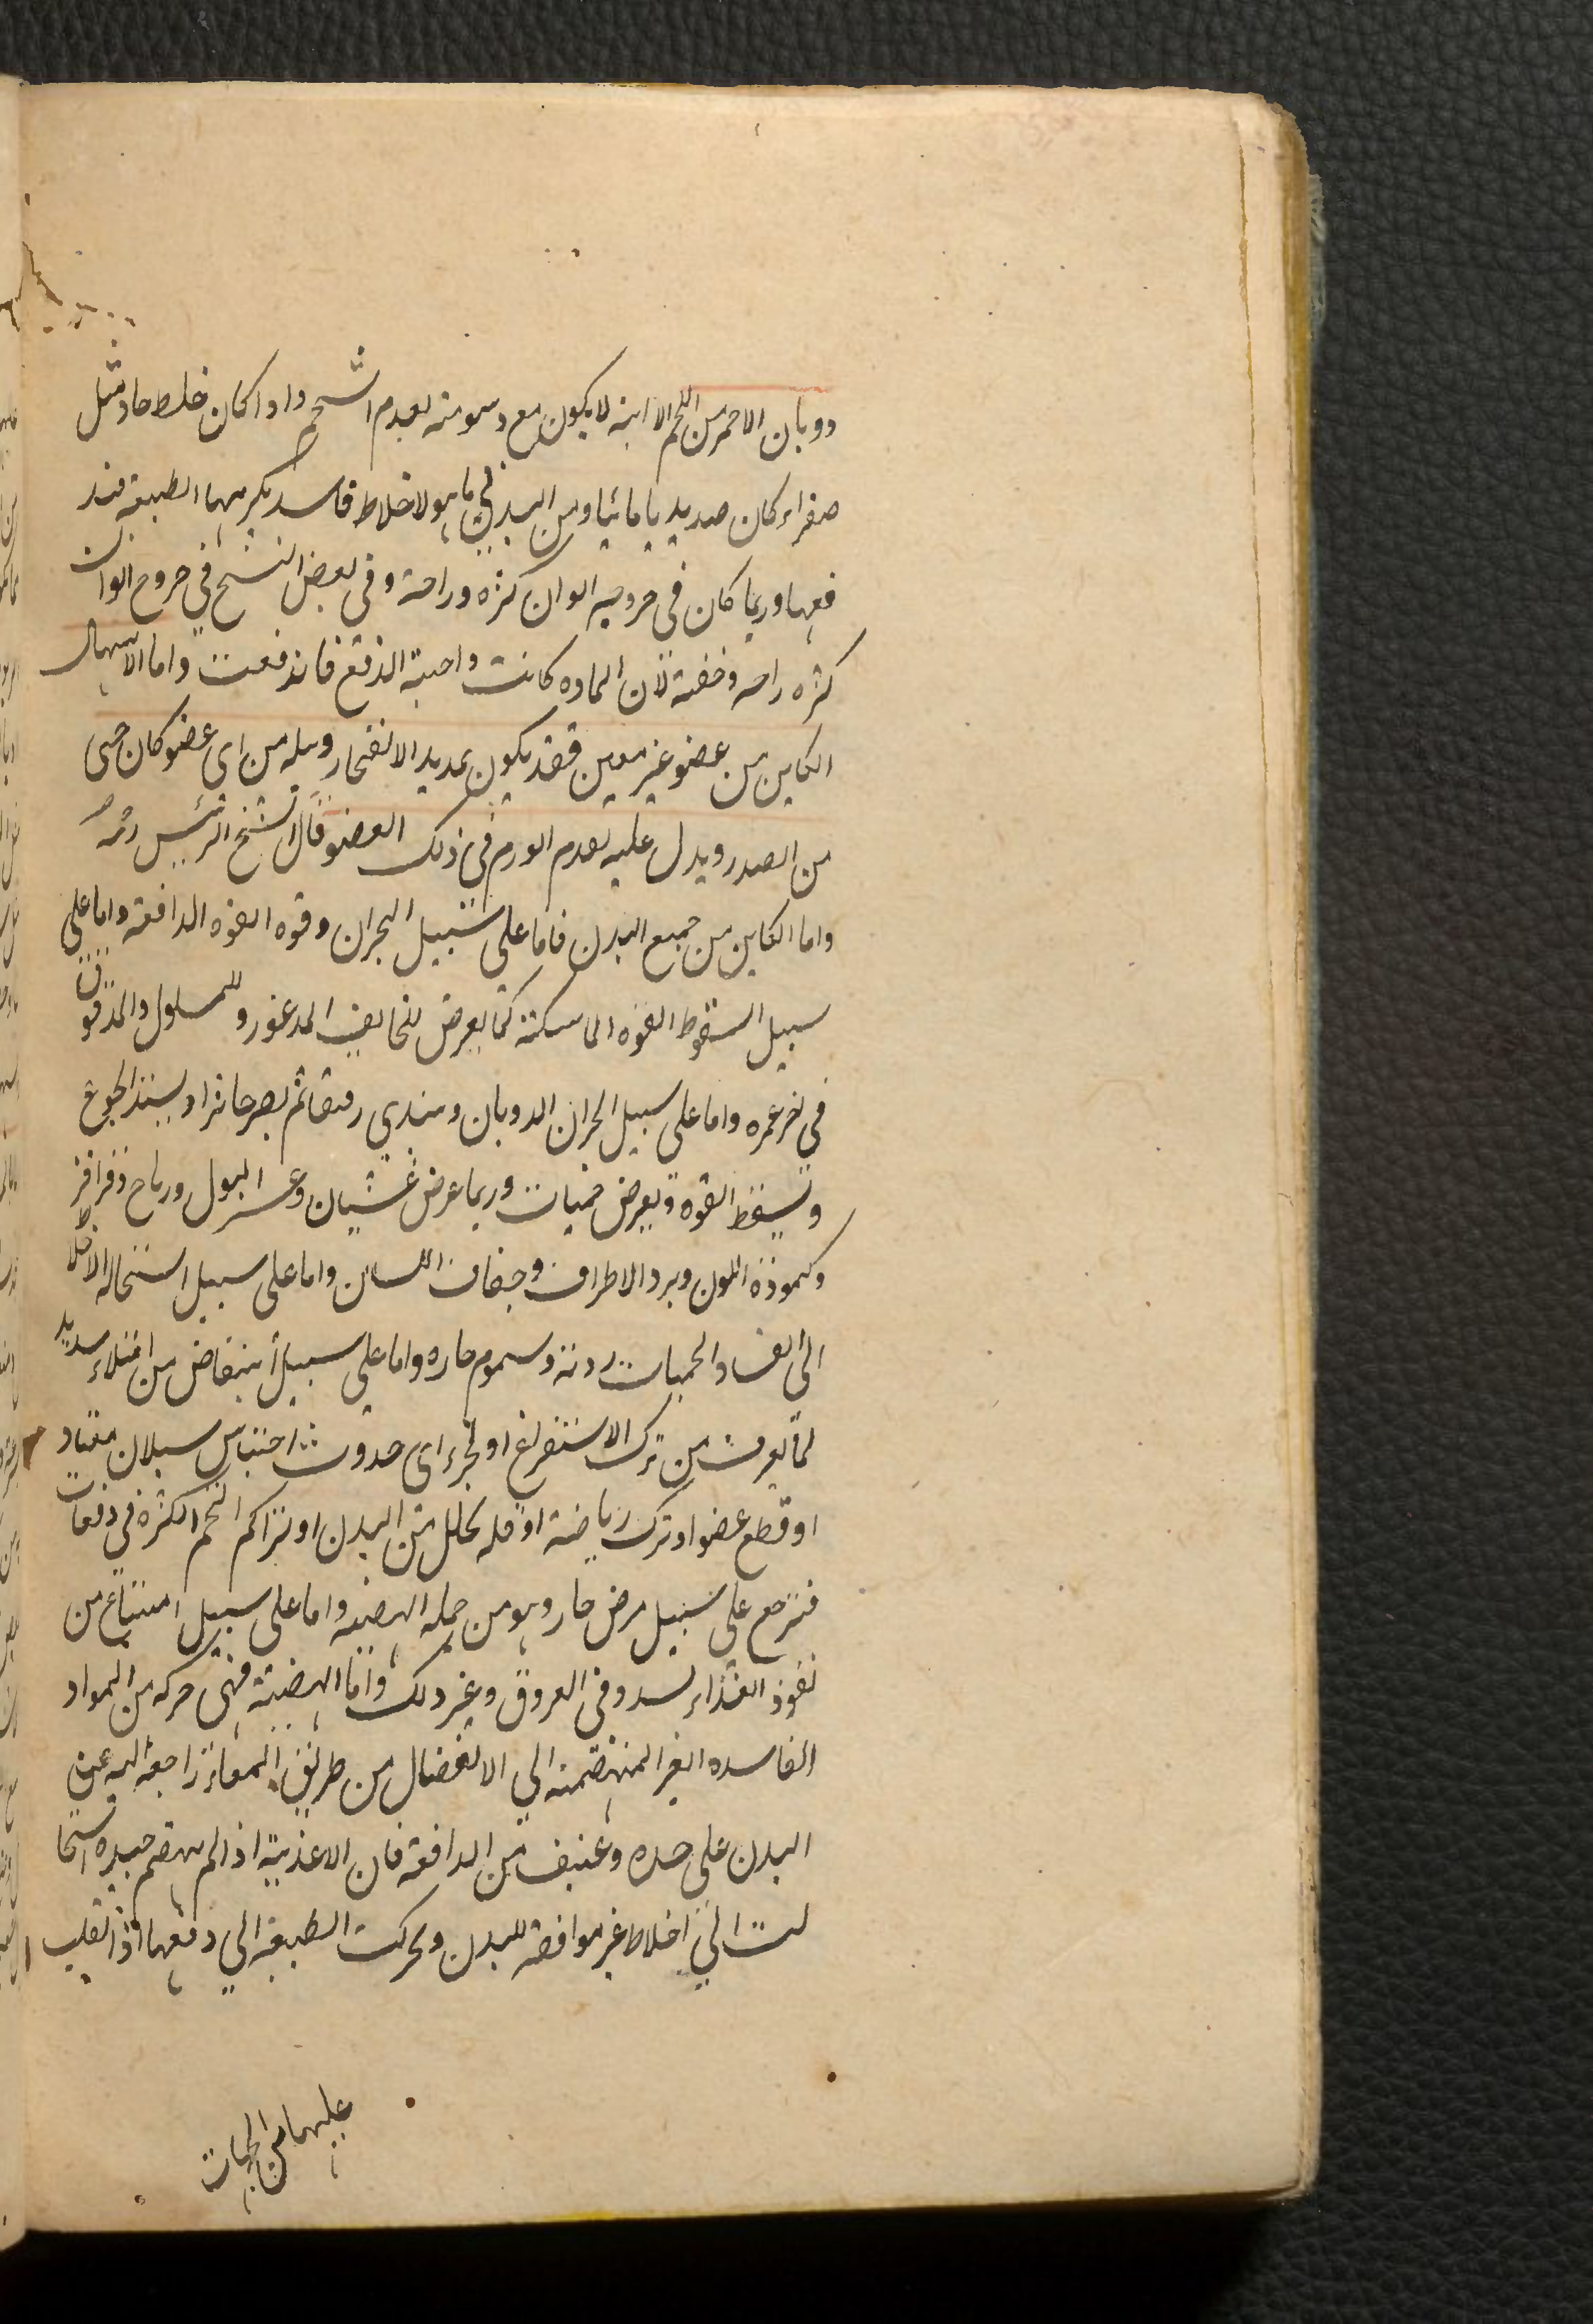 ذوبان الاحمر من اللحم الا انه لا يكون مع دسومته لعدم الشحم واذا كان خلط حاد مثل
صفراء كان صديديا مائيا ومن البدن ما هو لاخلاط فاسد يكرهها الطبيعة فتد
فعها وربما كان في خروجه الوان كثره وراحة وفى بعض النسخ في خروج الوان
كثره راحه وخفة لان الماده كانت واجبة الدفع فاندفعت واما الاسهال
الكاين من عضو غير معين فقد يكون لانفجار وبيله من اى عضو كان حتى
من الصدر ويدل عليه تقدم الورم في ذلك العضو قال الشيخ الرئيس رحمه
واما الكاين من جميع البدن فاما على سبيل البحران وقوه القوه الدافعة واما على
سبيل السقوط القوه الماسكته كما يعرض للخايف المذعور وللمسلول والمدقوق
في اخر عمره واما على سبيل الذوبان ويبتدي رقيقا ثم يصير خاثرا ويشتد الجوع
وتسقط القوه ويعرض حميات وربما عرض غشيان وعسر البول ورياح وقراقر
وكمودة اللون وبرد الاطراف وجفاف اللسان واما على سبيل استحاله الاخلا
الى الفساد لحميات ردئة وسموم حاره واما على سبيل انتفاض من امتلاء شديد
لما يعرف من ترك الاستفراغ او حدوث احتباس سيلان معتاد
او قطع عضو او ترك رياضة او قله تحلل من البدن او تراكم التخم الكثره في دفعات
فترجع على سبيل مرض حار وهو من جمله الهيضه واما على سبيل امتناع من
نفوذ الغذاء لسدد فى العروق وغير ذلك واما الهيضة فهى حركه من المواد
الفاسده الغير المنهضمة الي الانفصال من طريق المعاء راجعة اليه عن
البدن على حده وعنيف من الدافعة فان الاغذية اذا لم ينهضم جيده استحا
لت الي اخلاط غير موافقة للبدن وتحركت الطبيعة الي دفعها اذا ثقلت
عليها من الجهات